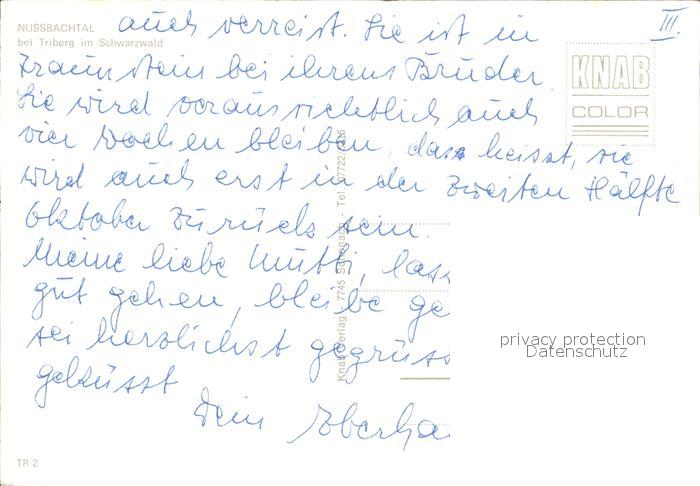 NUSSBACHTAL
bei Triberg im Schwarzwald
III.
auch verreist. Sie ist in
Traunstein bei ihrem Bruder.
Sie wird voraussichtlich auch
vier Wochen bleiben, das heisst, sie
wird auch erst in der zweiten Hälfte
Oktober zurück sein.
Meine liebe Mutti, lass
gut gehen, bleibe ge
sei herzlichst gegrüss
geküsst
Dein Eberha
KNAB
COLOR
Knab Verlag · 7745 Schonach - Tel. 07722/
privacy protection
Datenschutz
TR 2